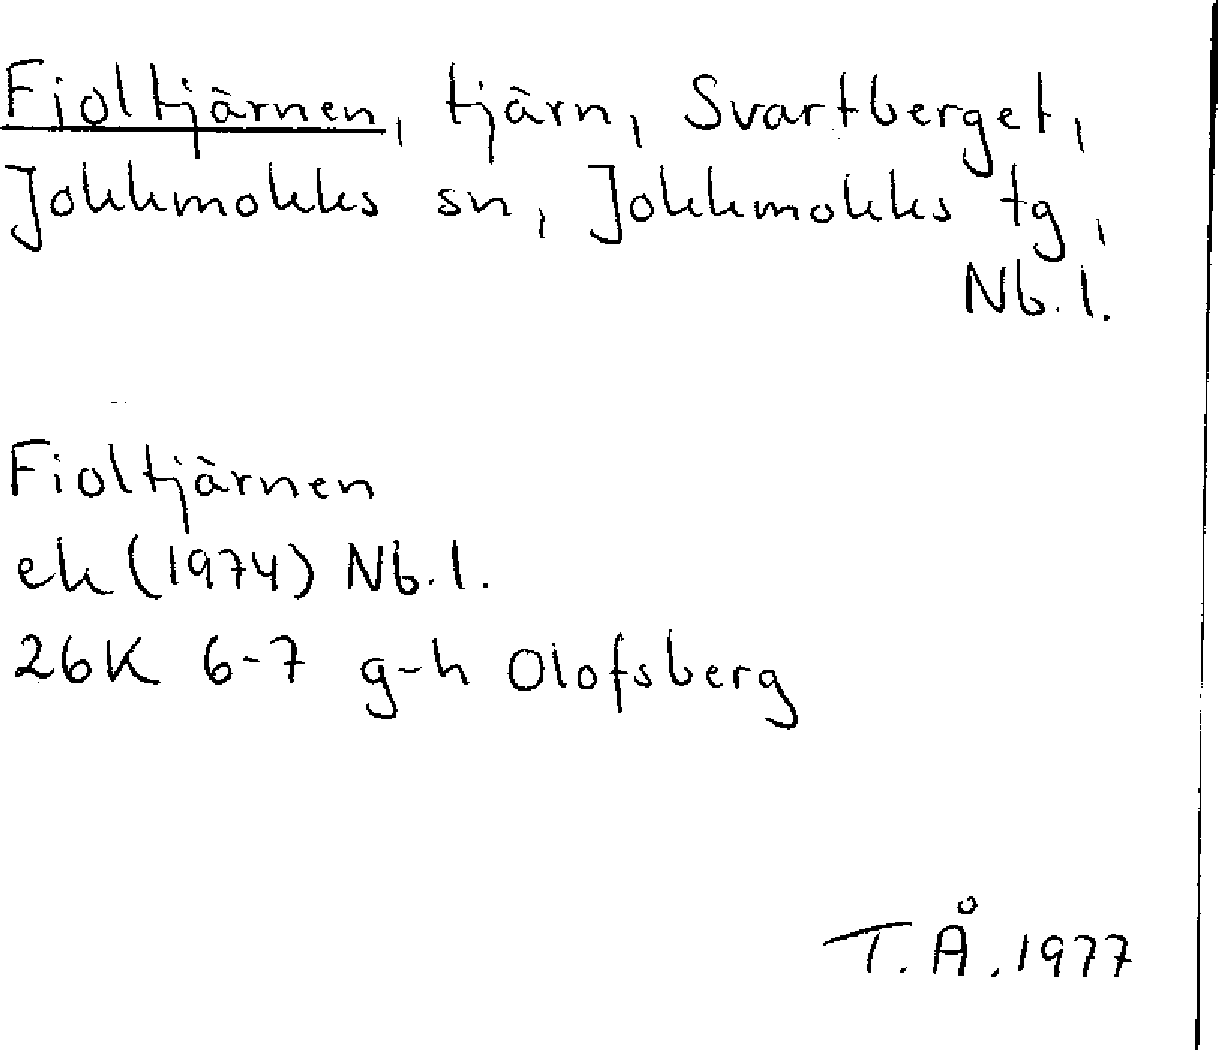 Fioltjärnen, tjärn, Svartberget,
Jokkmokks sn, Jokkmokks tg,
Nb. l.
Fioltjärnen
ek (1974) Nb. l.
26K 6-7 g-h Olofsberg
T. Å. 1977